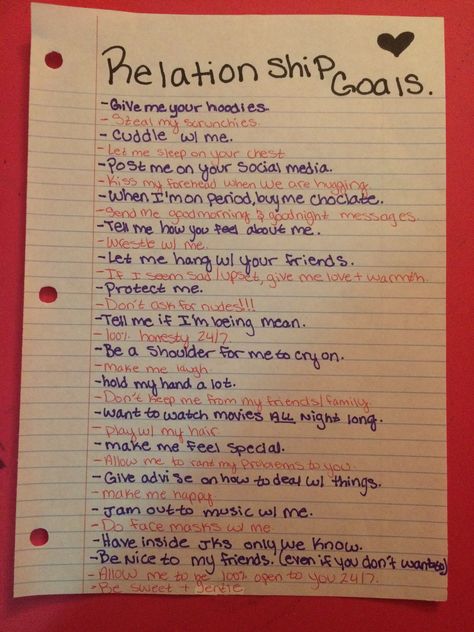 Relationship
Goals.
-Give me your hoodies.
- Steal my scrunchies.
- Cuddle w/ me.
- Let me sleep on your chest
-Post me on your social media.
- Kiss my forehead when we are hugging.
-When I'm on period, buy me choclate.
- Send me goodmorning & goodnight messages.
- Tell me how you feel about me.
- Wrestle w/ me.
- Let me hang w/ your friends.
- If I seem sad/upset, give me love + warmth.
- Protect me.
- Don't ask for nudes!!!
-Tell me if I'm being mean.
- 100% honesty 24/7.
- Be a shoulder for me to cry on.
- make me laugh.
-hold my hand a lot.
- Don't keep me from my friends/family.
-want to watch movies ALL night long.
- play w/ my hair
- make me feel special.
- Allow me to rant my problems to you.
- Give advise on how to deal w/ things.
- make me happy
- Jam out to music w/ me.
- Do face masks w/ me.
-Have inside jks only we know.
-Be Nice to my friends. (even if you don't want to)
- Allow me to be 100% open to you 24/7.
- Be sweet + gentle.